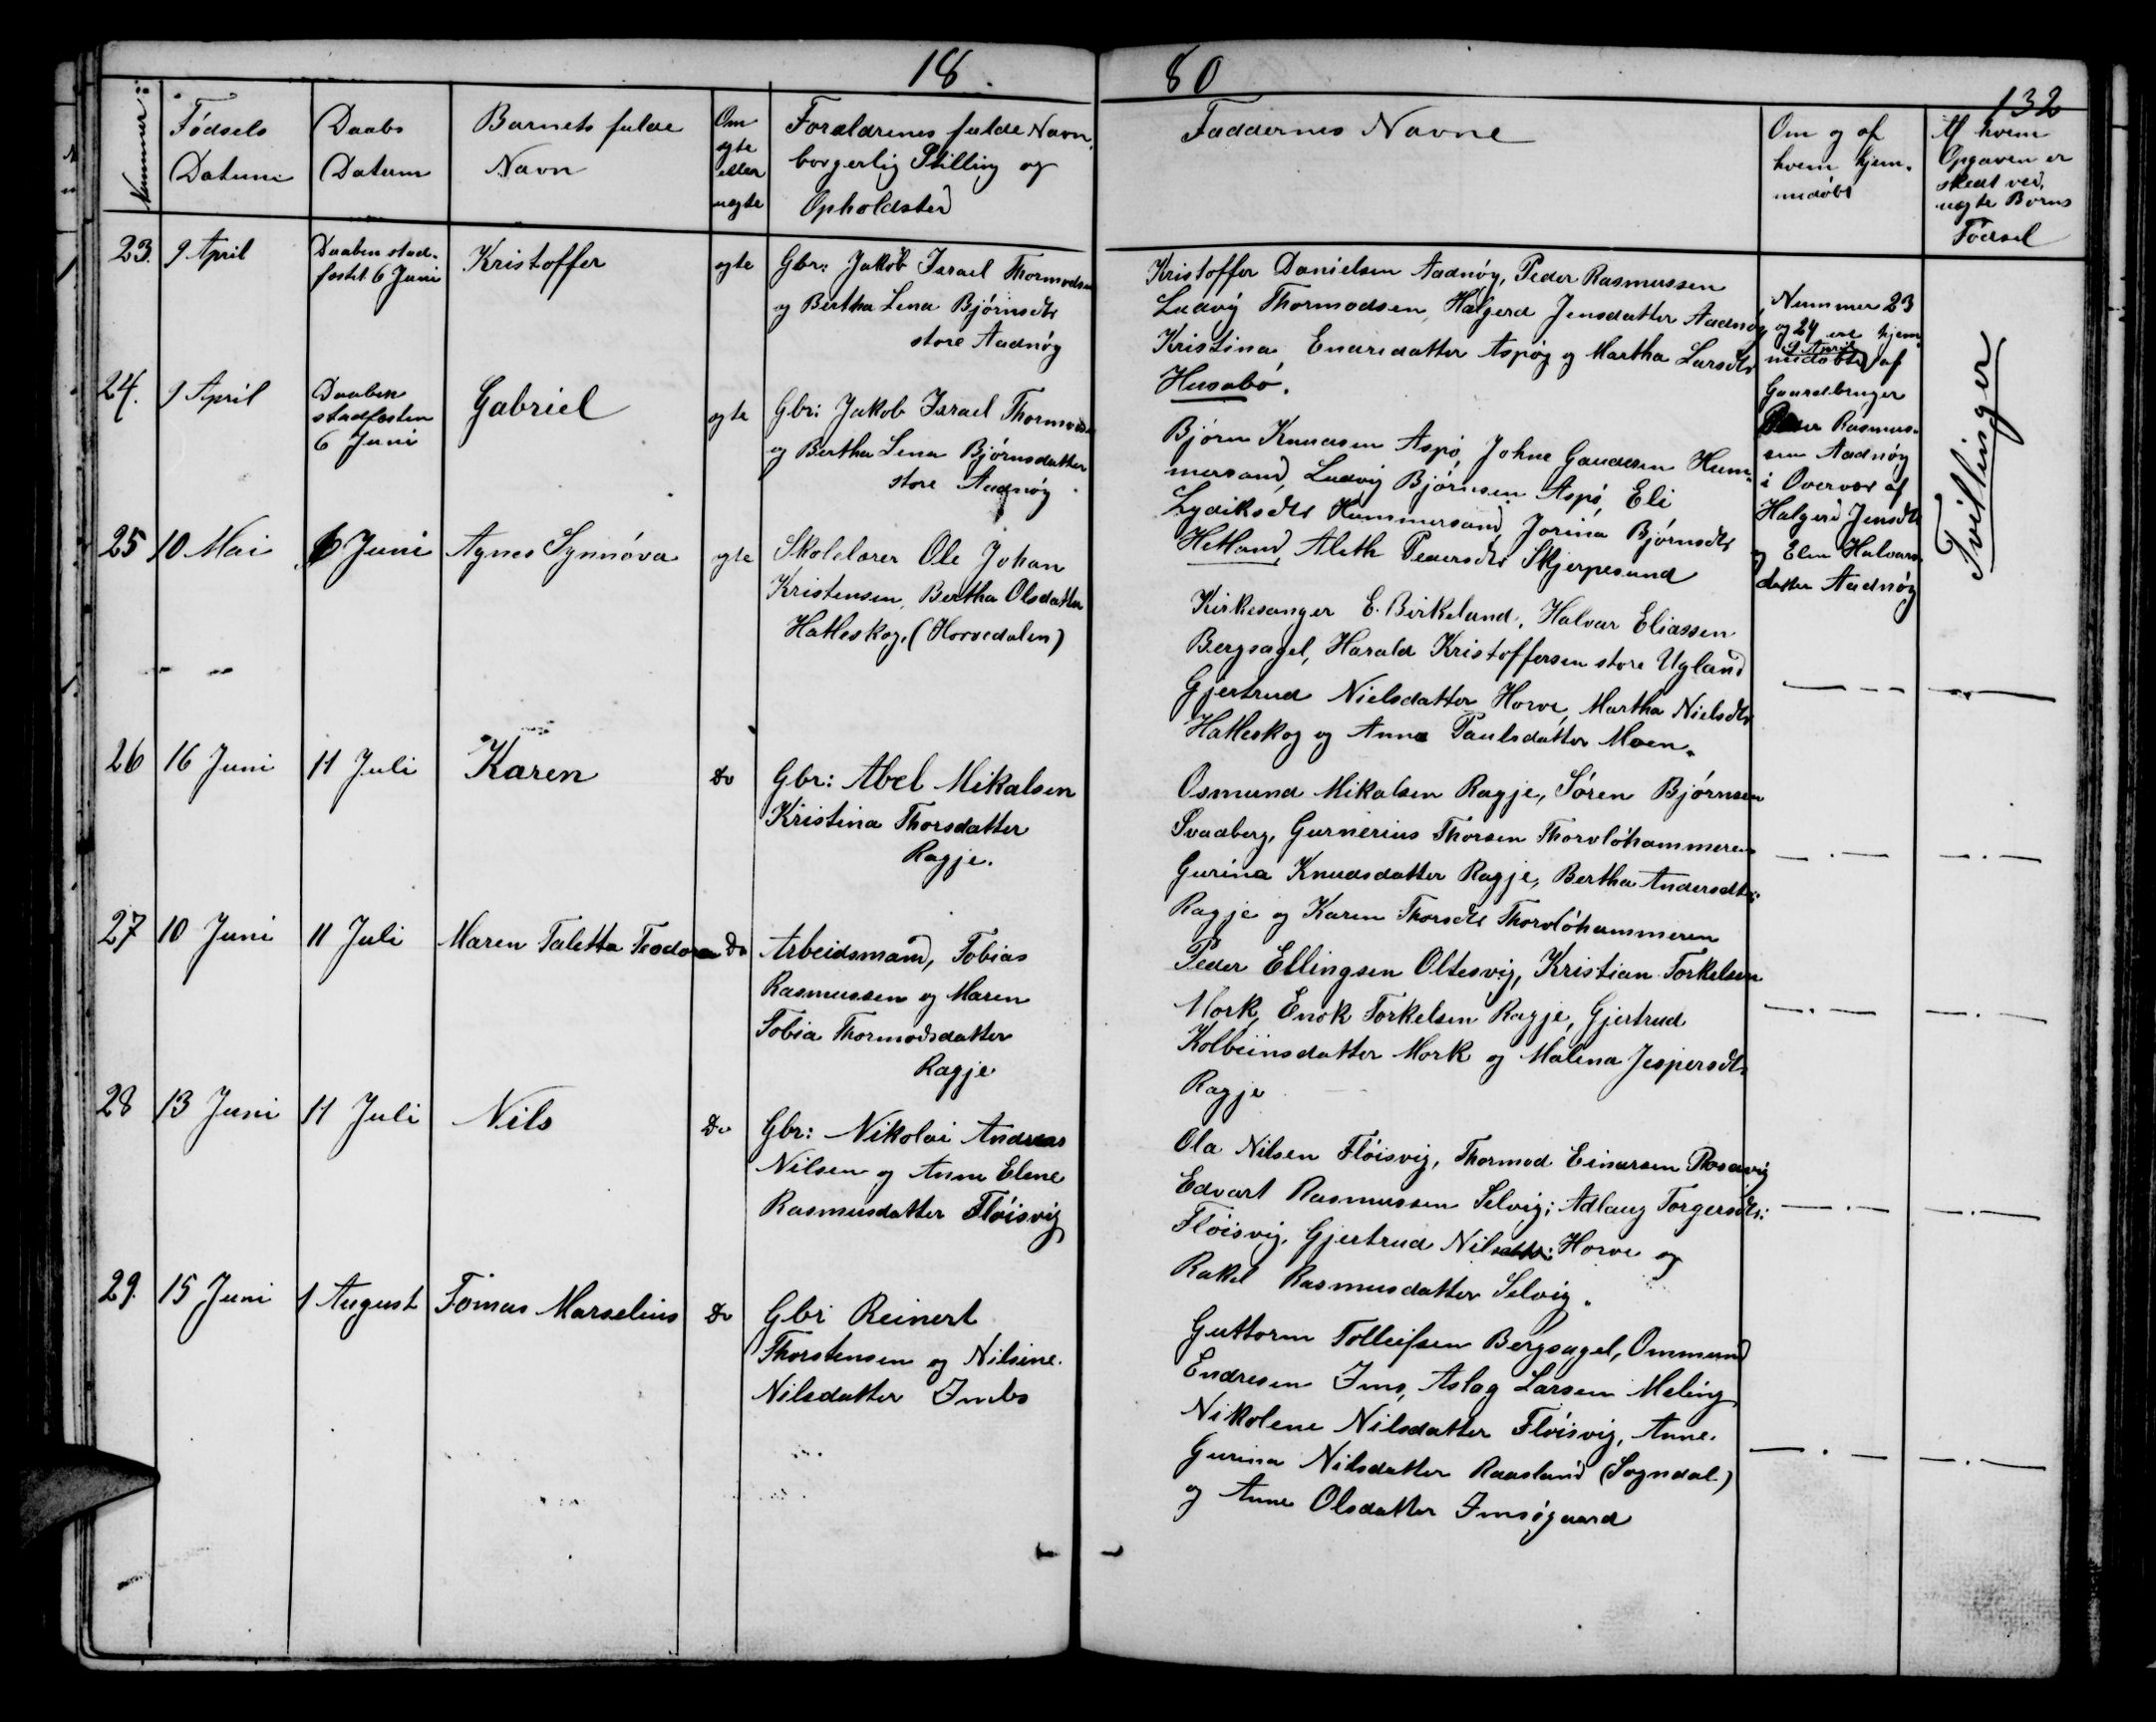 18.
80
132
Nummer:
Fødsels
Datum
Daabs
Datum
Barnets fulde
Navn
Om
egte
eller
uegte
Foraldrenes fulde Navn,
borgerlig Stilling og
Opholdsted
Faddernes Navne
Om og af
hvem hjem-
medøbt
Af hvem
Opgaven er
skedt ved
uegte Børns
Fødsel
23.
9 April
Daaben stad-
festet 6 Juni
Kristoffer
egte
Gbr: Jakob Israel Thormodsen
og Bertha Lena Bjørnsdtr
store Aadnøy
Kristoffer Danielsen Aadnøy, Peder Rasmussen
Ludvig Thormodsen, Halgerd Jensdatter Aadnøy
Kristina Enaresdatter Aspøy og Martha Larsdtr
Husabø.
Nummer 23
og 24 ere hjem-
9 April
medøbte af
Gaardbruger
Peder Rasmus-
sen Aadnøy
i Overvær af
Halgerd Jensdtr
og Elen Halvars-
datter Aadnøy
Tvillinger
24.
9 April
Daaben
stadfesten
6 Juni
Gabriel
egte
Gbr: Jakob Israel Thormodsen
og Bertha Lena Bjørnsdatter
store Aadnøy
Bjørn Knudsen Aspø, Johne Gaudesen Hum-
mersand, Ludvig Bjørnsen Aspø, Eli
Lydiksdtr Hummersand, Jorina Bjørnsdtr
Hetland, Aleth Pedersdtr Skjerpesund
25
10 Mai
6 Juni
Agnes Synnøva
egte
Skolelærer Ole Johan
Kristensen, Bertha Olsdatter
Hatleskog, (Horvedalen)
Kirkesanger E. Birkeland, Halvar Eliassen
Bergsagel, Harald Kristoffersen store Ugland
Gjertrud Nielsdatter Horve, Martha Nielsdtr
Hatleskog og Anna Paulsdatter Moen.
26
16 Juni
11 Juli
Karen
Do
Gbr: Abel Mikalsen
Kristina Thorsdatter
Ragje.
Osmund Mikalsen Ragje, Søren Bjørnsen
Svadberg, Gurnerius Thorsen Thorvløhammeren
Gurina Knudsdatter Ragje, Bertha Andersdtr:
Ragje og Karen Thorsdtr Thorvløhammeren
27
10 Juni
11 Juli
Maren Taletta Teodora
Do
Arbeidsmand, Tobias
Rasmussen og Maren
Tobia Thormodsdatter
Ragje
Peder Ellingsen Oltesvig, Kristian Torkelsen
Mork, Enok Torkelsen Ragje, Gjertrud
Kolbeinsdatter Mork og Malena Jespersdtr
Ragje
28
13 Juni
11 Juli
Nils
Do
Gbr: Nikolai Andreas
Nilsen og Anne Elene
Rasmusdatter Fløisvig
Ola Nilsen Fløisvig, Thormod Einarsen Rosavig
Edvart Rasmussen Selvig; Adlaug Torgersdtr:
Fløisvig, Gjertrud Nilsdttr: Horve og
Rakel Rasmusdatter Selvig.
29.
15 Juni
1 August
Tomas Marselius
Do
Gbr Reinert
Thorstensen og Nilsine
Nilsdatter Imbs
Guttorm Tolleifsen Bergsagel, Ommund
Endresen Ims, Aslag Larsen Meling
Nikolene Nilsdatter Fløisvig, Anne
Gurina Nilsdatter Raasland (Sogndal)
og Anne Olsdatter Imsøgaard